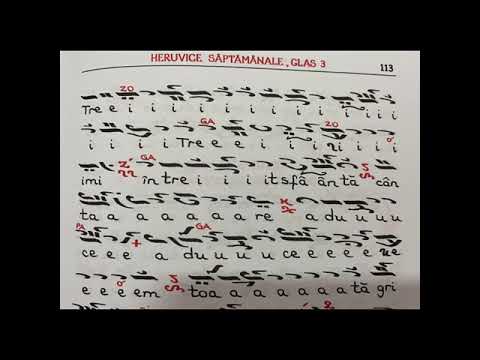 HERUVICE SĂPTĂMÂNALE, GLAS 3
113
ZO
Tre e i i i i i i i i i i i i i
GA ZO
i i i i Tre e e i i i ri i i i
GA
imi în tre i i i it sfâ ân tă cân
ta a a a a a a re a du u u u
PA GA
ce e e a du u u u ce e e e e re
e e e em toa a a a a a a tă gri